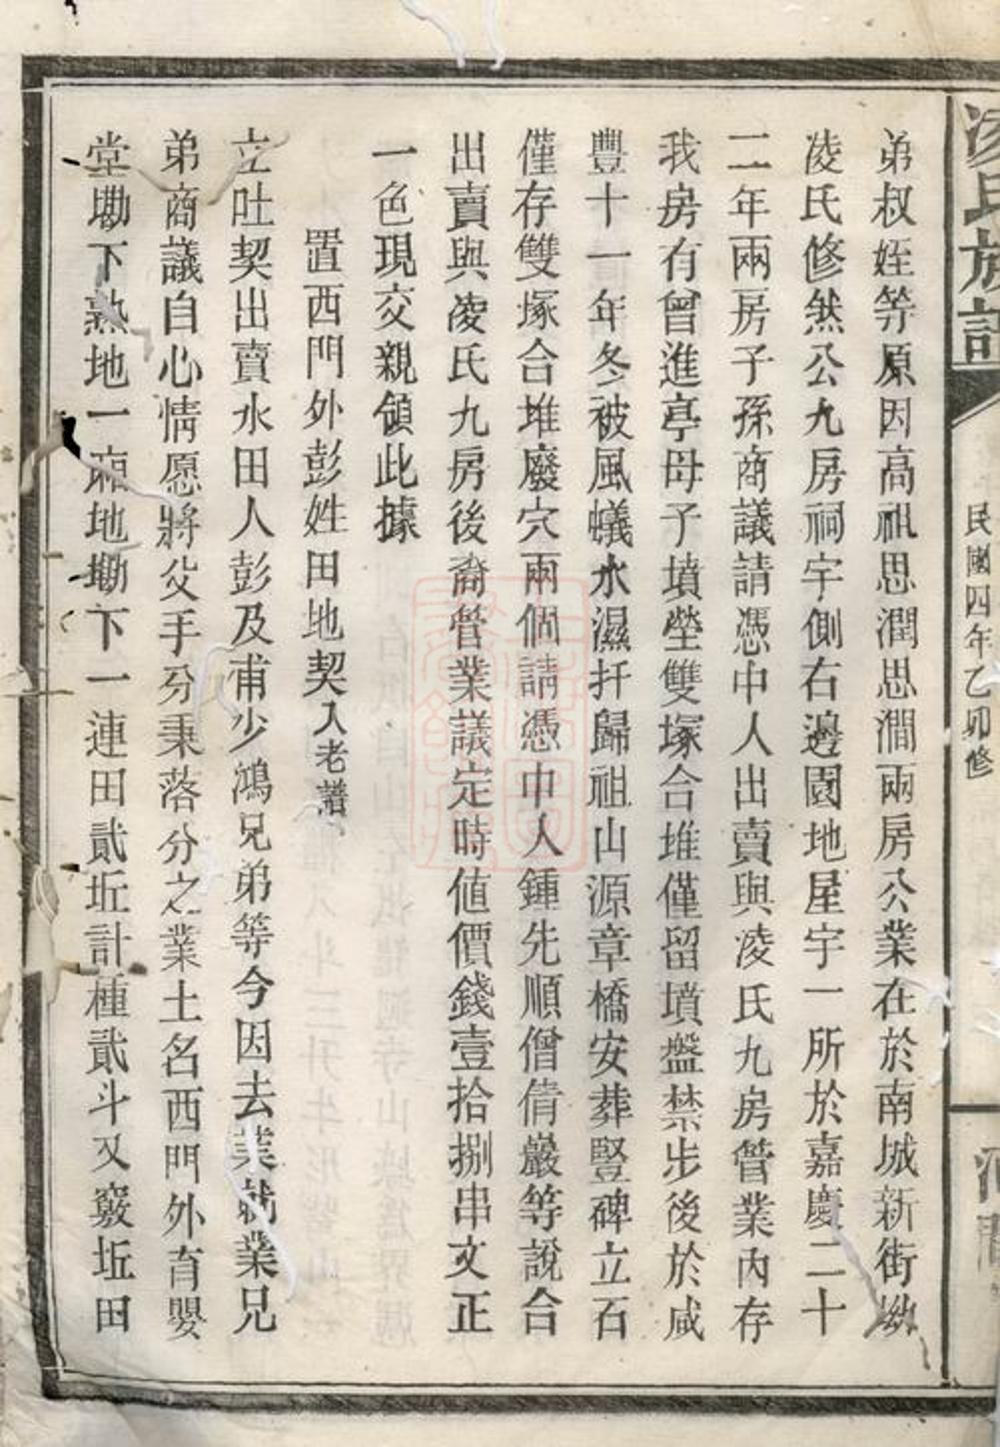 凌氏族譜
民國四年乙卯修
弟叔姪等原因高祖思潤思澗兩房公業在於南城新街坳
凌氏修然公九房祠宇側右邊園地屋宇一所於嘉慶二十
二年兩房子孫商議請憑中人出賣與凌氏九房管業內存
我房有曾進亭母子墳塋雙塚合堆僅留墳盤禁步後於咸
豐十一年冬被風蟻水濕扦歸祖山源章橋安葬豎碑立石
僅存雙塚合堆廢穴兩個請憑中人鍾先順僧倩嚴等說合
出賣與凌氏九房後裔管業議定時值價錢壹拾捌串文正
一色現交親領此據
置西門外彭姓田地契入老譜
立吐契出賣水田人彭及甫少鴻兄弟等今因去業就業兄
弟商議自心情愿將父手分秉落分之業土名西門外育嬰
堂墈下熟地一廂地墈下一連田貳坵計種貳斗又竅坵田